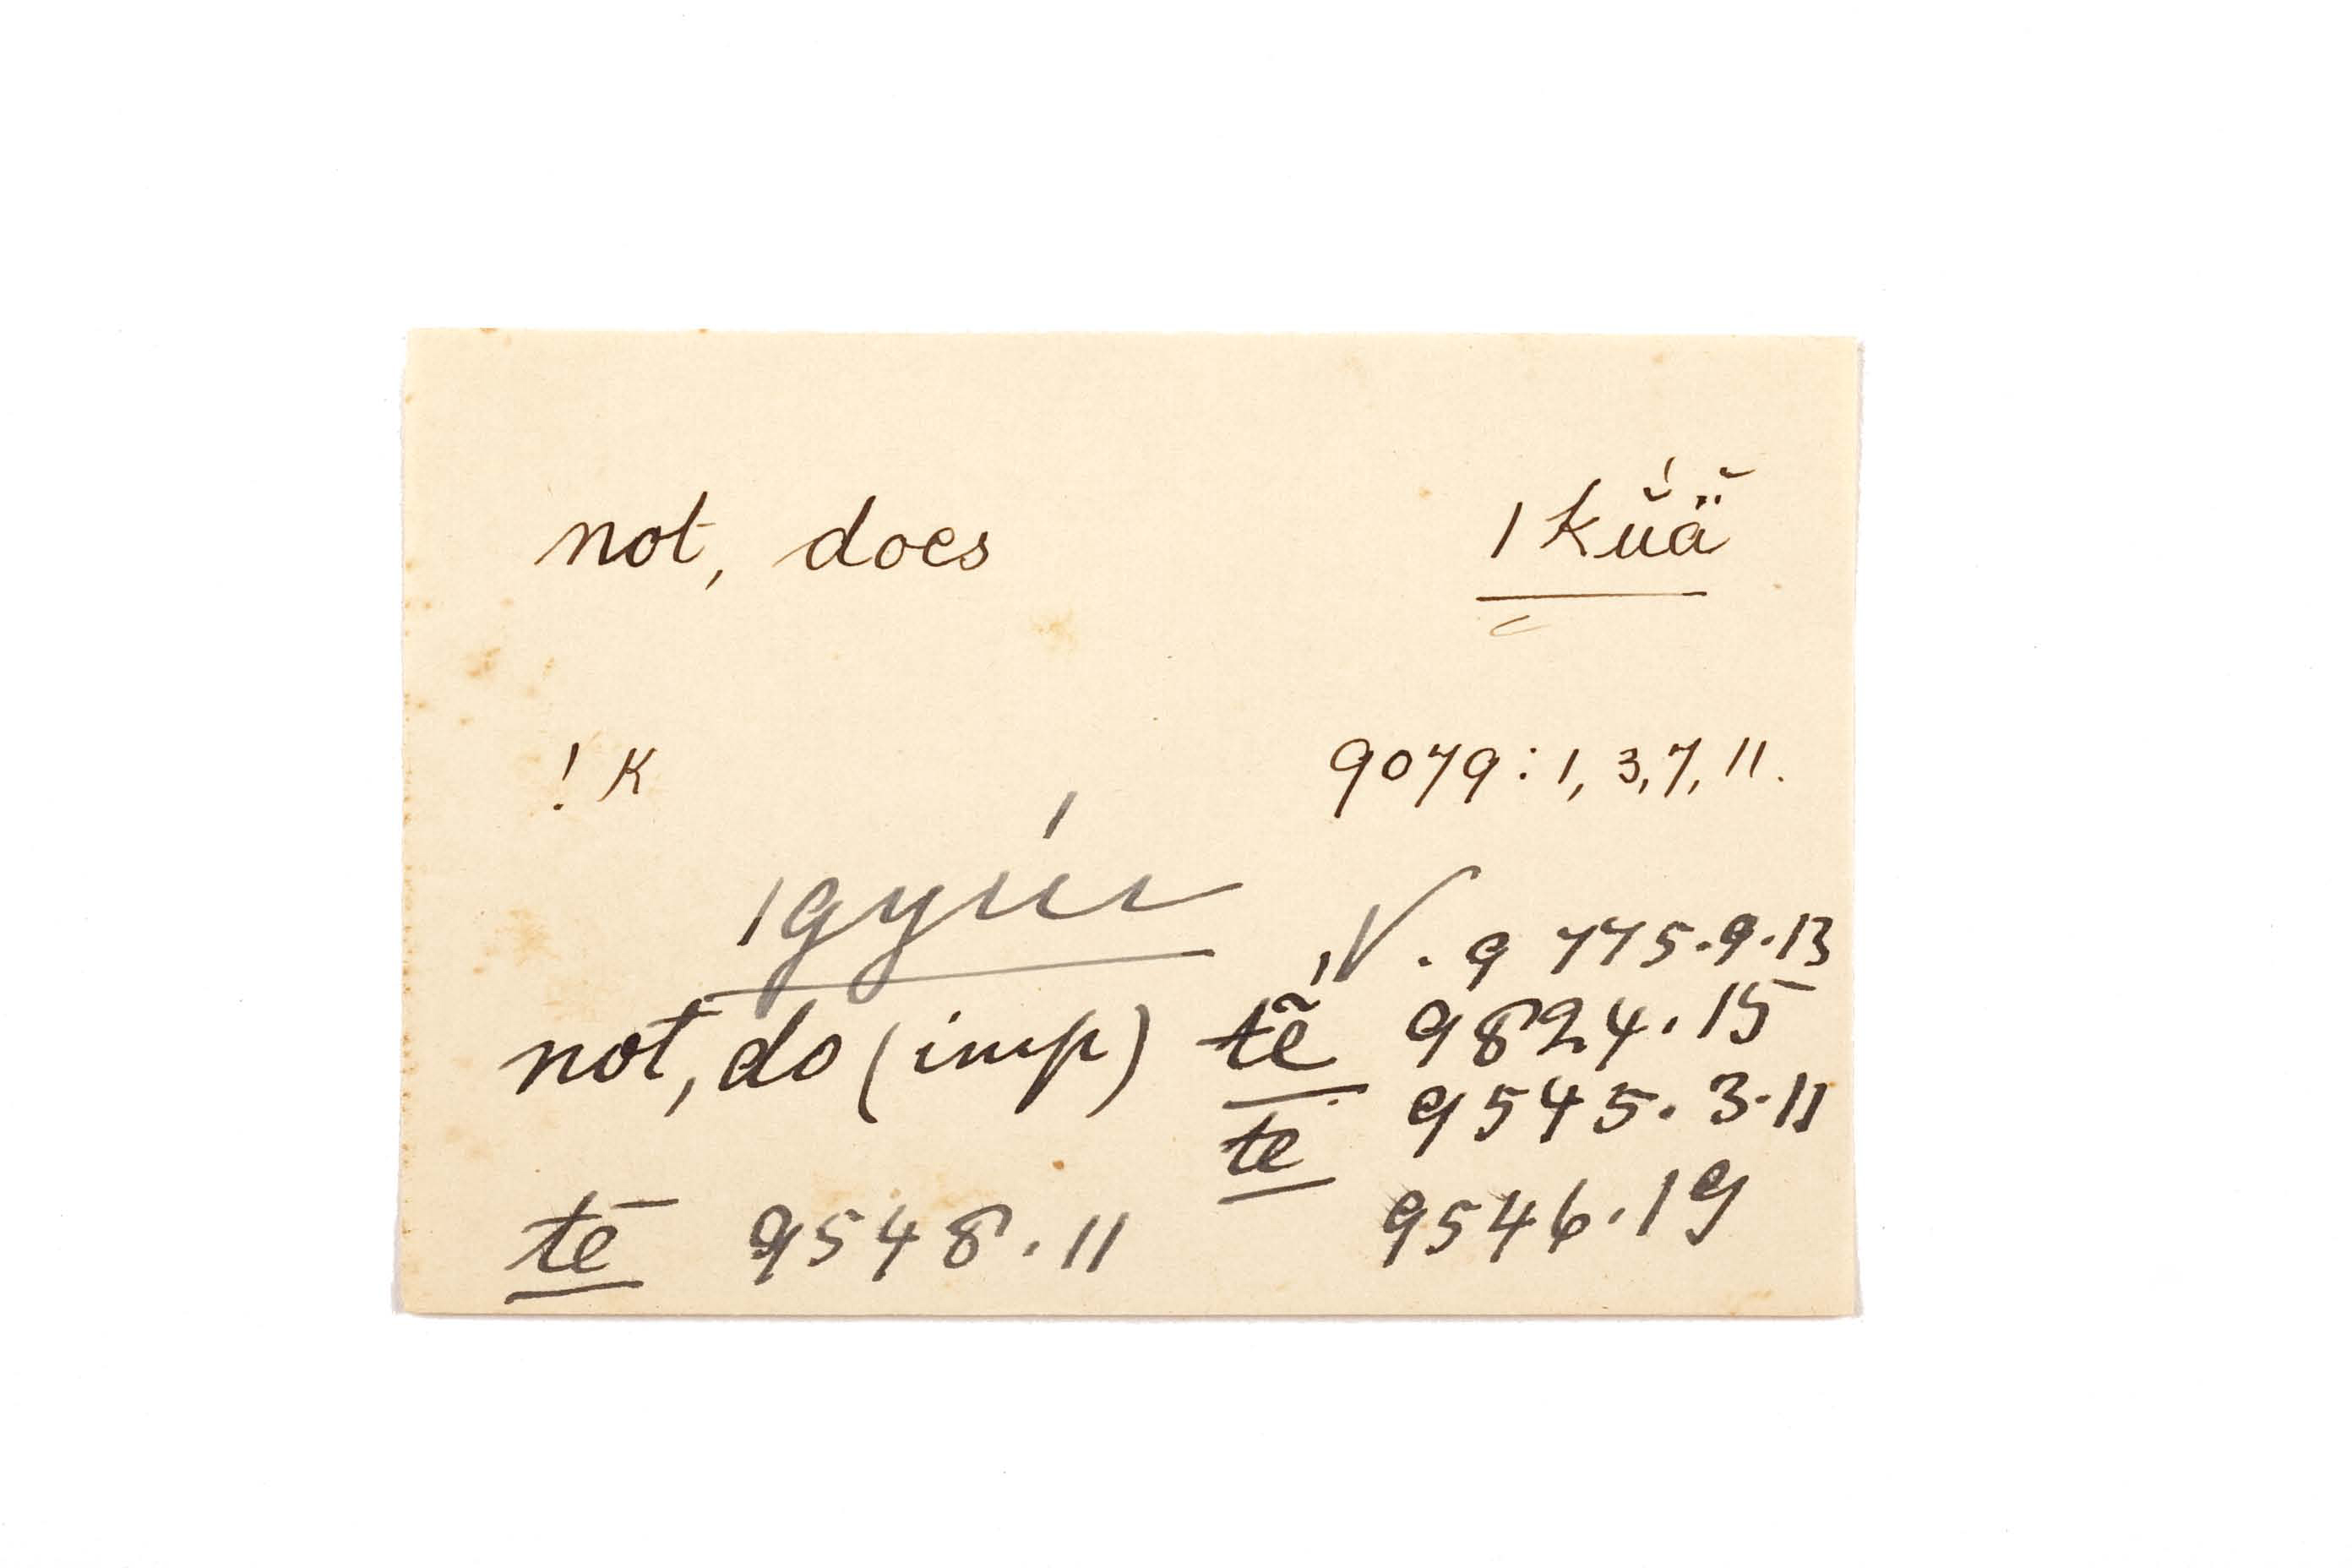 not, does |kŭ́ä̆
! K 9079: 1, 3, 7, 11.
|gyúı |V. 9775.9.13
not, do (imp) tẽ 9824.15
te 9545.3.11
tē 9548.11 9546.19